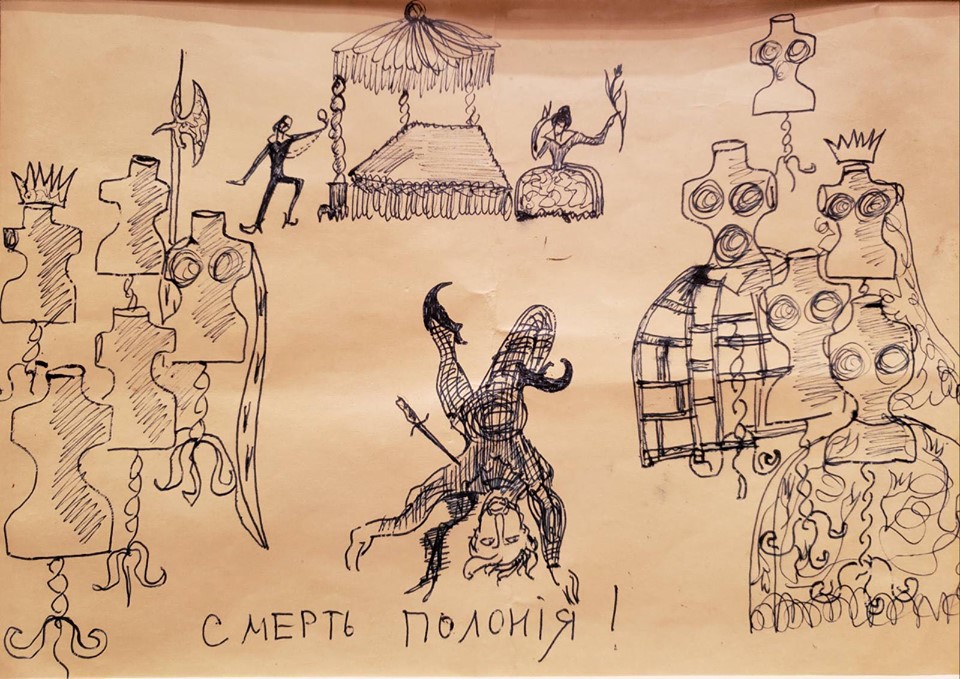 СМЕРТЬ ПОЛОНІЯ!